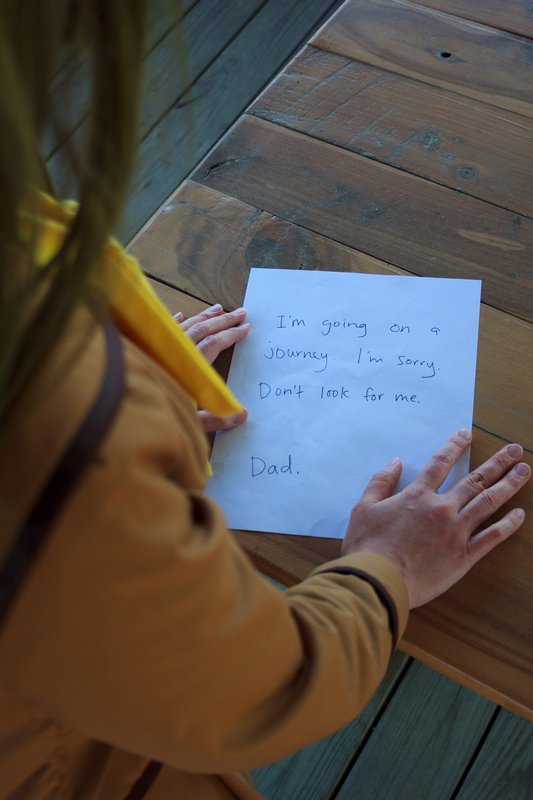 I'm going on a
journey. I'm sorry.
Don't look for me.
Dad.